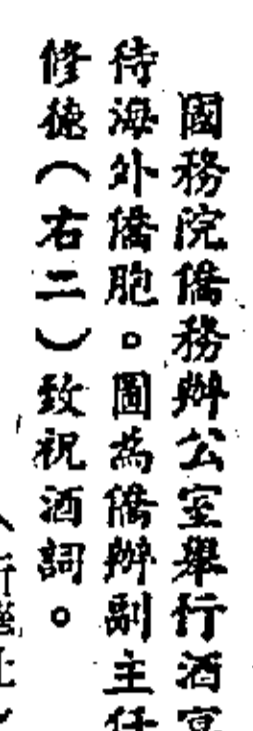 國務院僑務辦公室舉行酒宴
待海外僑胞。圖為僑辦副主任
修德（右二）致祝酒詞。